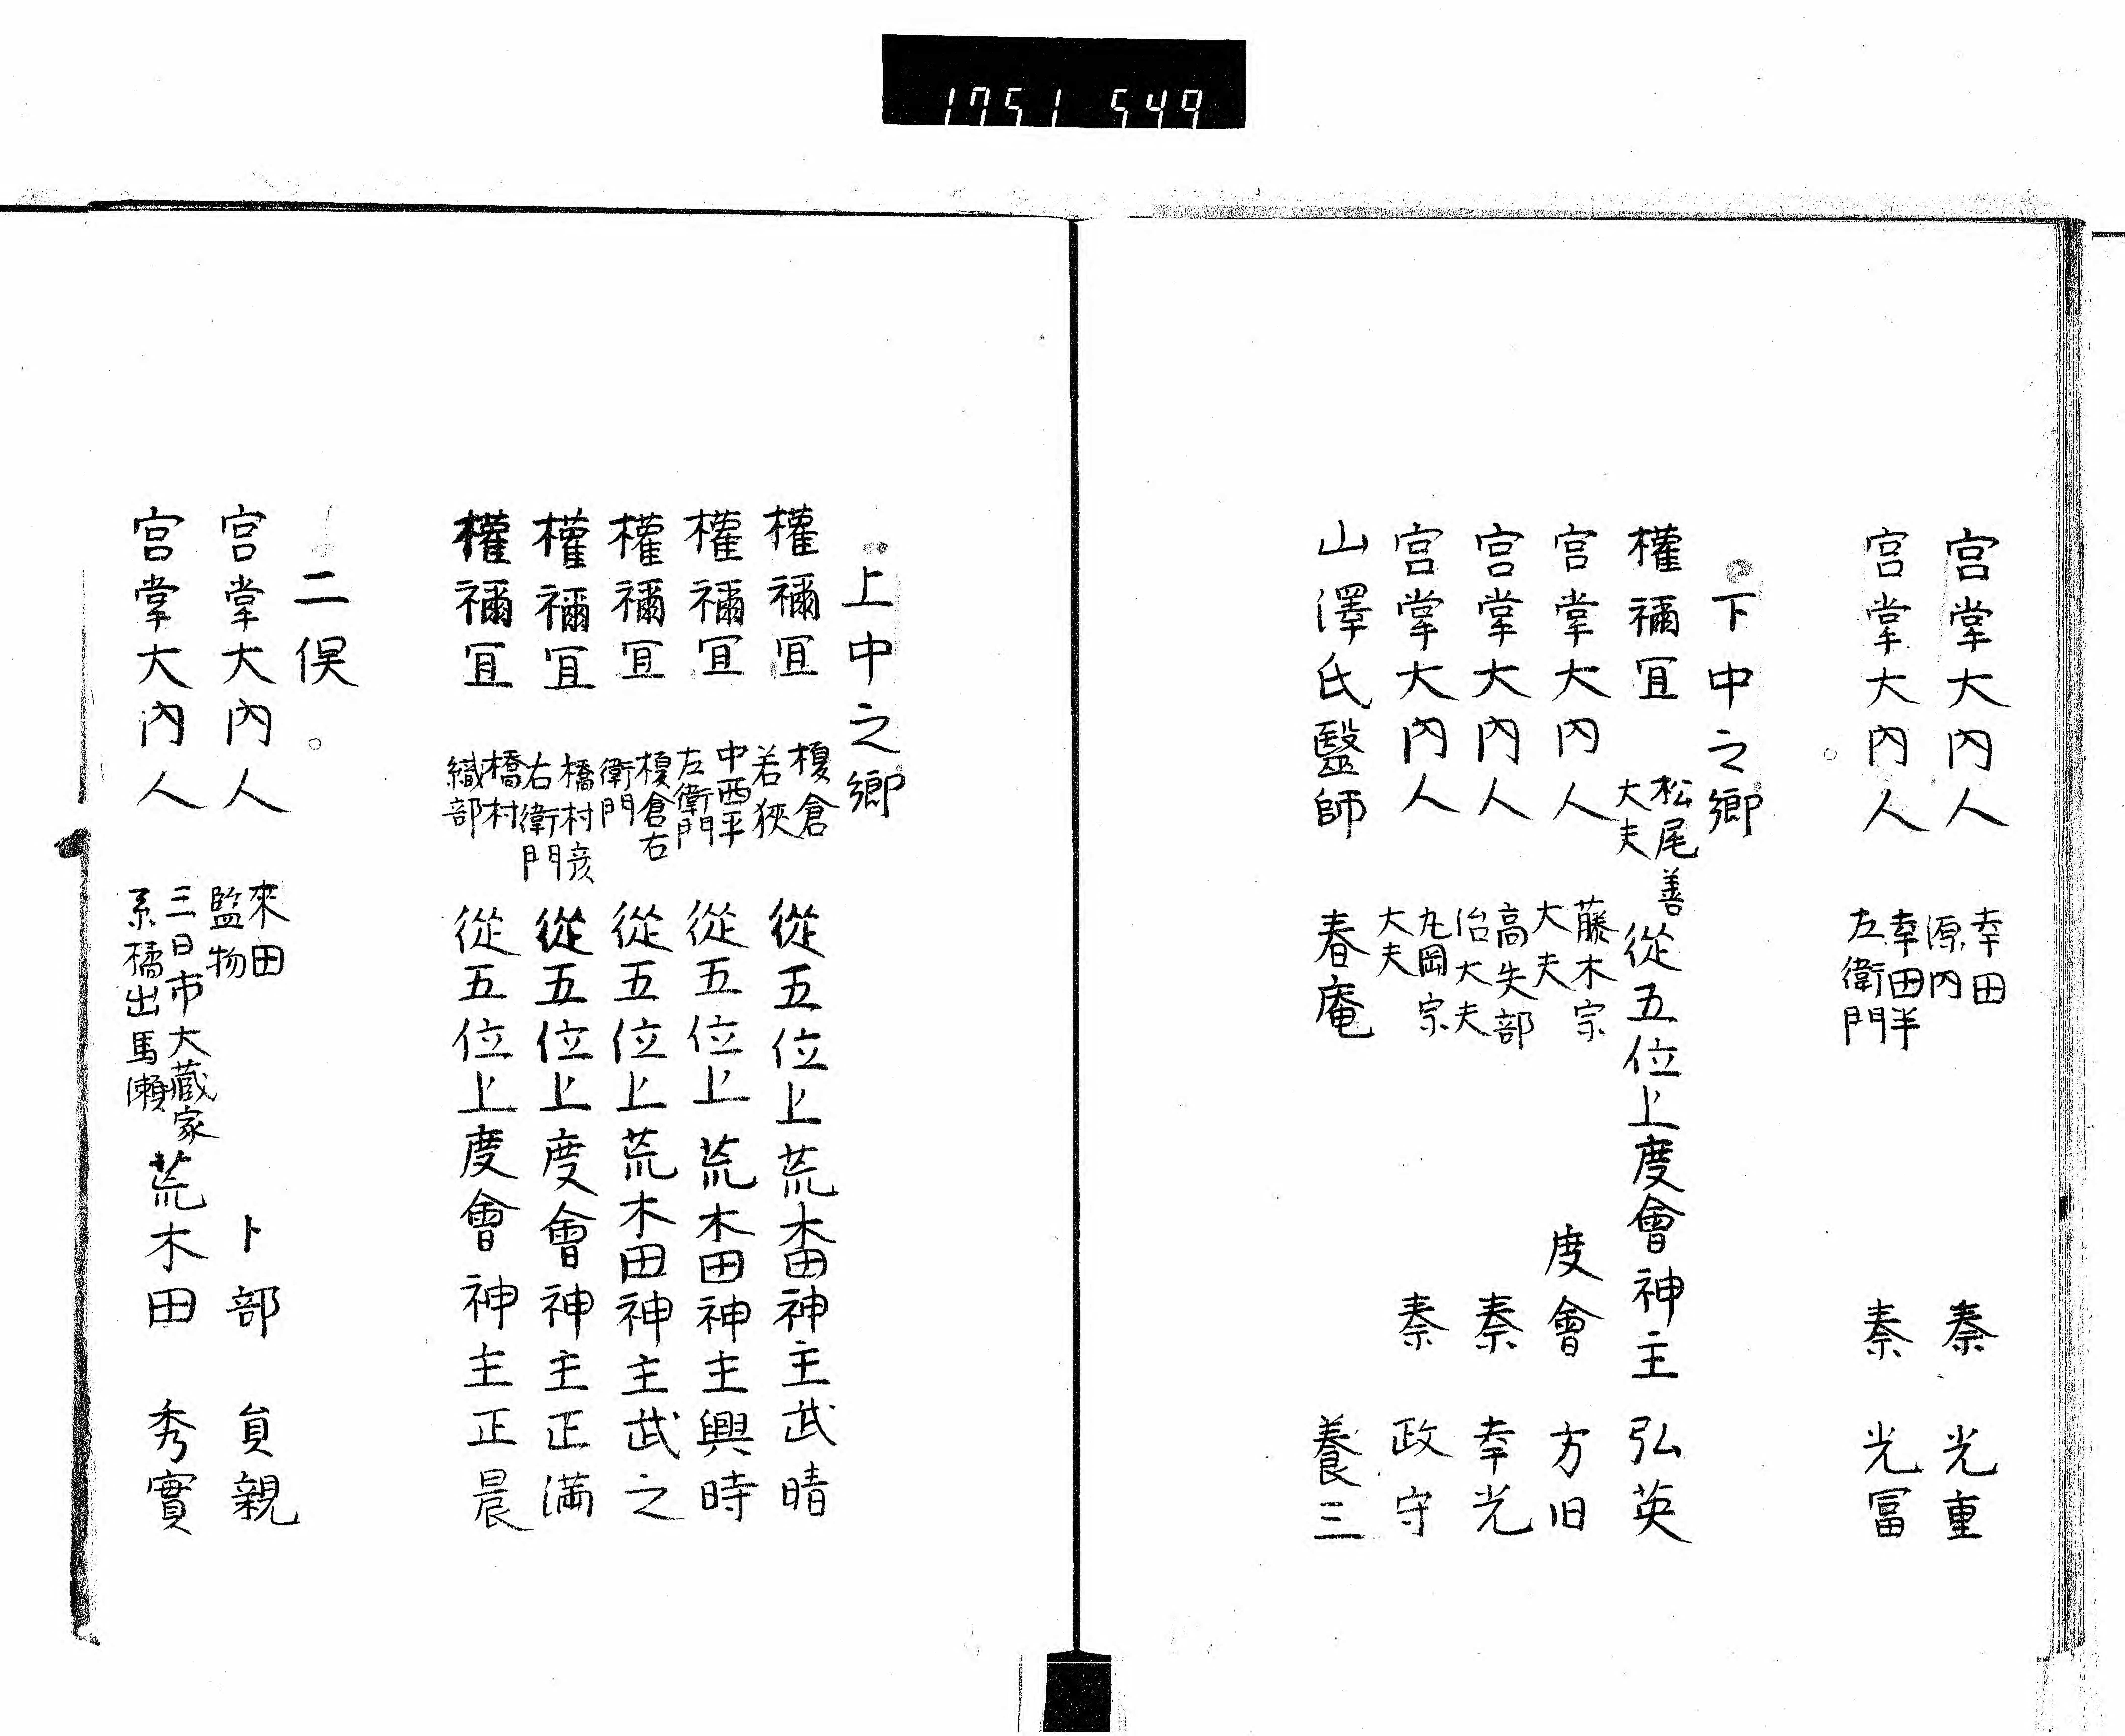 1751 549
宮掌大内人 幸田源内 秦 光重
宮掌大内人 幸田半左衛門 秦 光冨
下中之郷
權禰冝 松尾善大夫 從五位上度會神主 弘英
宮掌大内人 藤木宗大夫 度會 方旧
宮掌大内人 高矢部治大夫 秦 幸光
宮掌大内人 九岡宗大夫 秦 政守
山澤氏醫師 春庵 養三
上中之郷
權禰冝 榎倉若狹 從五位上荒木田神主武晴
權禰冝 中西平左衛門 從五位上荒木田神主興時
權禰冝 榎倉右衛門 從五位上荒木田神主武之
權禰冝 橋村彦右衛門 從五位上度會神主正満
權禰冝 橋村織部 從五位上度會神主正晨
二俣
宮掌大内人 來田監物 卜部 貟親
宮掌大内人 三日市大蔵家系橘出馬瀬 荒木田 秀實